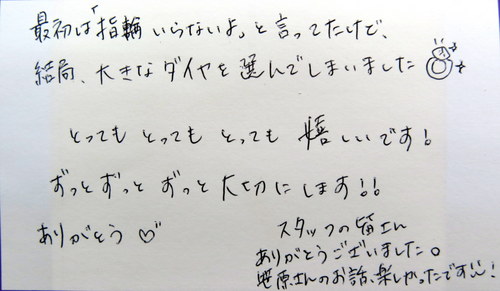 最初は「指輪いらないよ。」と言ってたけど、
結局、大きなダイヤを選んでしまいました
とっても とっても とっても 嬉しいです!
ずっとずっと ずっと大切にします!!
ありがとう♡
スタッフの皆さん
ありがとうございました。
笹原さんのお話、楽しかったです!